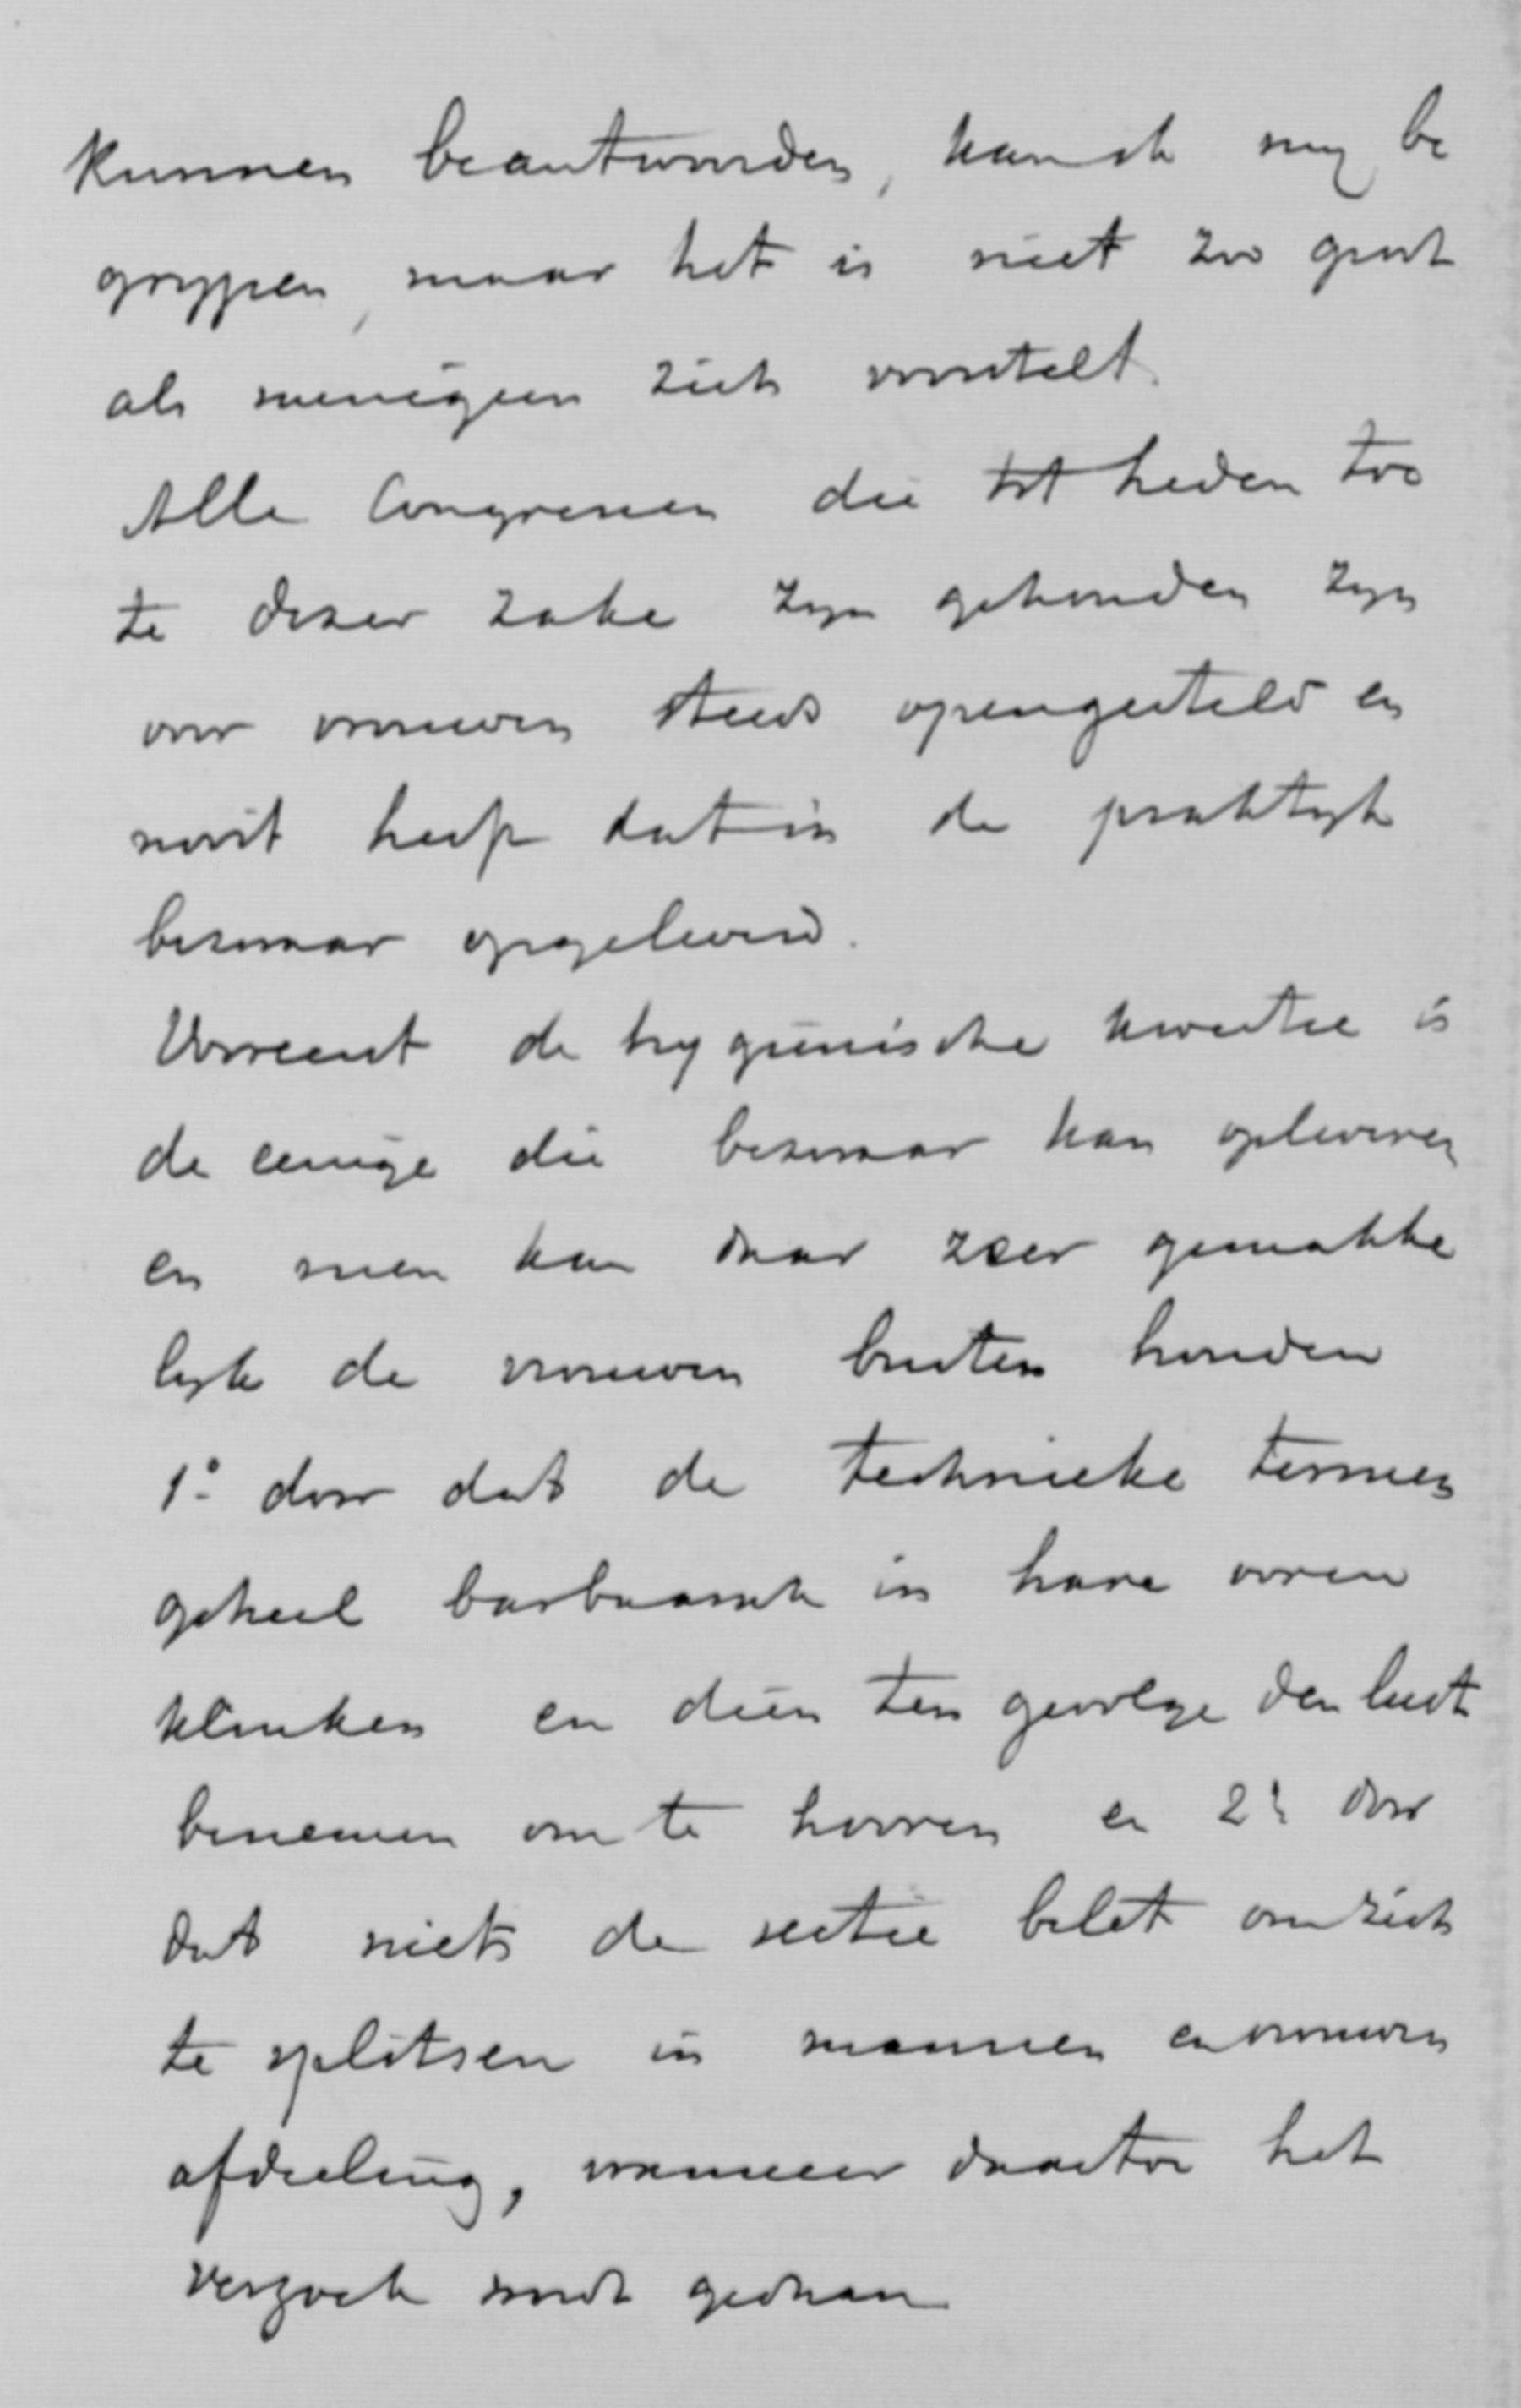 kunnen beantwoorden, kan ik my be
grypen, maar het is niet zoo groot
als menigeen zich voorstelt.
Alle Congressen die tot heden toe
te dezer zake zyn gehouden zyn
voor vrouwen steeds opengesteld en
nooit heeft dat in de praktyk
bezwaar opgeleverd.
Vooreerst de hygiënische kwestie is
de eenige die bezwaar kan opleveren
en men kan daar zeer gemakke
lyk de vrouwen buiten houden
1º door dat de technieke termen
geheel barbaarsch in hare ooren
klinken en dien ten gevolge den lust
benemen om te hooren en 2º door
dat niets de sectie belet om zich
te splitsen in mannen en vrouwen
afdeeling, wanneer daartoe het
verzoek wordt gedaan